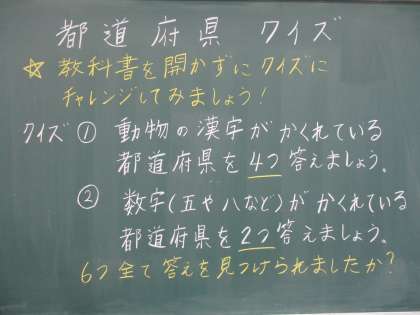 都道府県 クイズ
☆ 教科書を開かずにクイズに
チャレンジしてみましょう!
クイズ① 動物の漢字がかくれている
都道府県を4つ答えましょう。
② 数字(五や八など)がかくれている
都道府県を2つ答えましょう。
6つ全て答えを見つけられましたか?